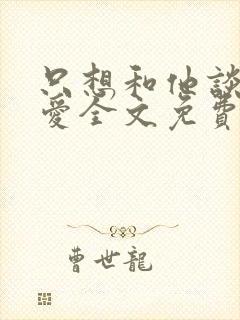 只想和他談
愛全文免費
曹世龍